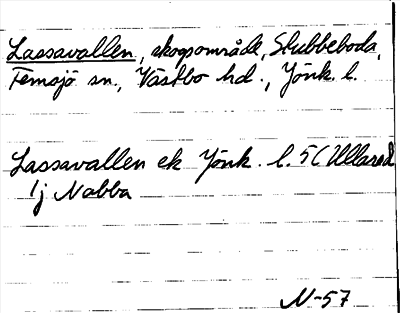 Lassavallen, skogsområde, Stubbeboda,
Femsjö sn., Västbo hd., Jönk. l.
Lassavallen ek Jönk. l. 5 (Ullared
1j Nabba
N-57